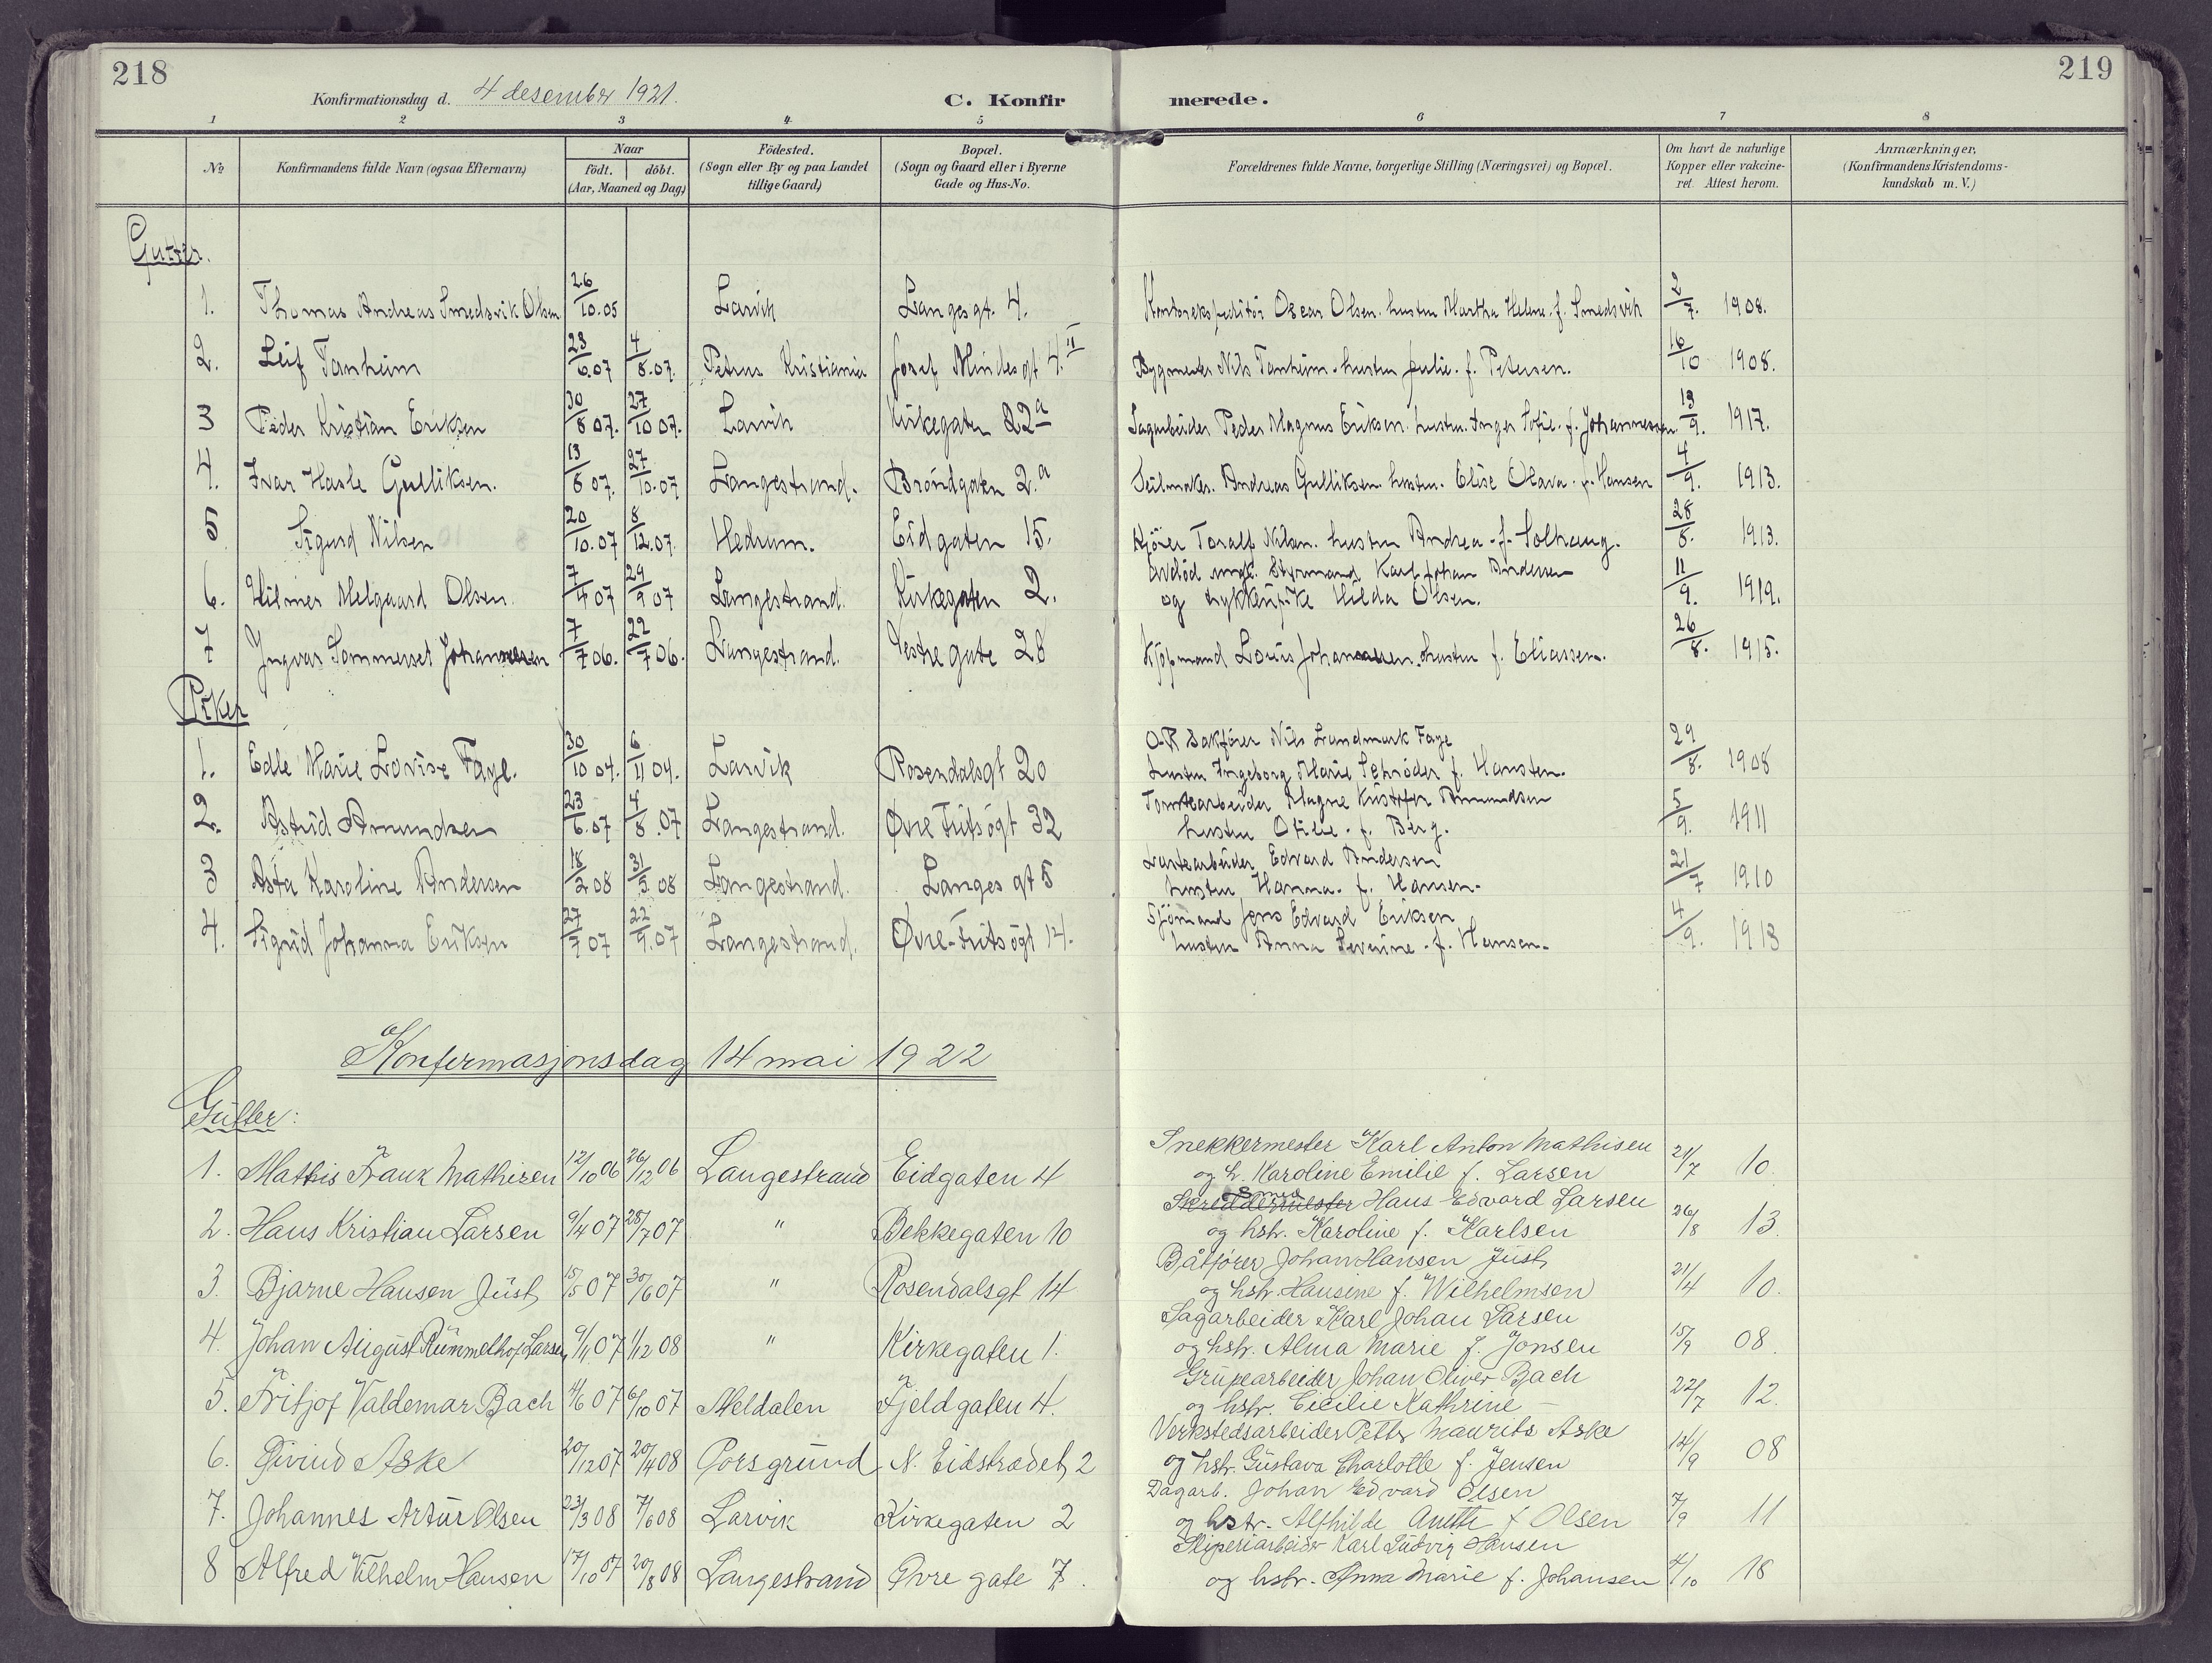 218
Konfirmationsdag d. 4 desember 1921.
C. Konfirmerede.
219
1 2 3 4 5 6 7 8
No
Konfirmandens fulde Navn (ogsaa Efternavn)
Naar
födt. döbt.
(Aar, Maaned og Dag)
Födested.
(Sogn eller By og paa Landet
tillige Gaard)
Bopæl.
(Sogn og Gaard eller i Byerne
Gade og Hus-No.
Forældrenes fulde Navne, borgerlige Stilling (Næringsvei) og Bopæl.
Om havt de naturlige
Kopper eller vakcine-
ret. Attest herom.
Anmærkninger,
(Konfirmandens Kristendoms-
kundskab m. V.)
Gutter.
1. Thomas Andreas Smedsvik Olsen 26/10.05 Larvik Langesgt. 4. Kontorekspeditör Oscar Olsen. hustru Martha Helene. f. Smedsvik 2/7. 1908.
2. Leif Tanheim 23/6.07 4/8.07. Petrus Kristiania Josef Mindes gt 4. II Bygmester Nils Tanheim. hustru Julie. f. Petersen. 16/10 1908.
3 Peder Kristian Eriksen 30/8 07. 27/10 07. Larvik Kirkegaten 22a Sagarbeider Peder Magnus Eriksen. hustru. Inger Sofie. f. Johannessen. 13/9. 1917.
4. Ivar Hasle Gulliksen. 13/8 07. 27/10.07 Langestrand. Bröndgaten 2.a Seilmaker. Andreas Gulliksen. hustru. Elise Olava. f. Hansen 4/9. 1913.
5 Sigurd Nilsen 20/10.07 8/12.07. Hedrum. Eidgaten 15. Kjörer Toralf Nilsen. hustru Andrea. f. Solhaug. 28/8. 1913.
6. Hilmer Melgaard Olsen. 7/4 07 29/9 07 Langestrand. Kirkegaten 2. avdöd ungk. Styrmand Karl Johan Andersen
og Hilda Olsen. 11/9. 1919.
7 Yngvar Sommersel Johannesen 7/7 06. 22/7 06. Langestrand. Vestre gate 28 Kjöpmand Louis Johannesen. hustru f. Eliassen. 26/8. 1915.
Piker
1. Edle Marie Lovise Faye. 30/10 04. 6/11 04. Larvik Rosendalsgt 20 O.R Sakförer Nils Landmark Faye
hustru Ingeborg Marie Schröder f. Hansten. 29/8. 1908
2. Astrid Amundsen 23/6.07 4/8.07 Langestrand. Øvre Fritsögt 32 Tomtearbeider Magne Kristofer Amundsen
hustru Otilie. f. Berg. 5/9. 1911
3 Asta Karoline Andersen 18/2 08 31/5. 08 Langestrand. Langes gt 5 Lastearbeider Edvard Andersen
hustru Hanna. f. Hansen. 21/7 1910
4. Sigrid Johanna Eriksen 27/7 07 22/9.07 Langestrand. Øvre-Fritsögt 14. Sjömand Jens Edvard Eriksen
hustru Anna Severine. f. Hansen. 4/9. 1913
Konfermasjonsdag 14 mai 1922
Gutter:
1. Mathis Frank Mathisen 12/10 06 26/12 06 Langestrand Eidgaten 4 Snekkermester Karl Anton Mathisen
og h. Karoline Emilie f. Larsen 21/7 10.
2. Hans Kristian Larsen 9/4 07 28/7 07 " Bekkegaten 10 Skreddermester Smed Hans Edvard Larsen
og hstr. Karoline f. Karlsen 26/8 13.
3. Bjarne Hansen Just 15/5 07 30/6 07 " Rosendalsgt 14 Båtförer Johan Hansen Just
og hstr. Hansine f. Wilhelmsen 21/4 10.
4. Johan August Rummelhof Larsen 9/11 07 1/12 08 " Kirkegaten 1. Sagarbeider Karl Johan Larsen
og hstr. Alma Marie f. Jonsen 15/9 08.
5. Fritjof Valdemar Bach 4/6 07 6/10 07 Meldalen Fjeldgaten 4. Grupearbeider Johan Oliver Bach
og hstr. Cicilie Kathrine — 22/7 12.
6. Øivind Aske 20/12 07 20/4 08 Porsgrund N. Eidstrædet 2 Verkstedsarbeider Petter Maurits Aske
og hstr. Gustava Charlotte f. Jensen 14/9 08
7. Johannes Artur Olsen 23/3 08 7/6 08 Larvik Kirkegaten 2 Dagarb. Johan Edvard Olsen
og hstr. Alfhilde Anette f Olsen 7/9 11
8 Alfred Vilhelm Hansen 17/10 07 20/8 08 Langestrand Øvre gate 7. Sliperiarbeider Karl Ludvig Hansen
og hstr. Anna Marie f. Johansen 4/10 18